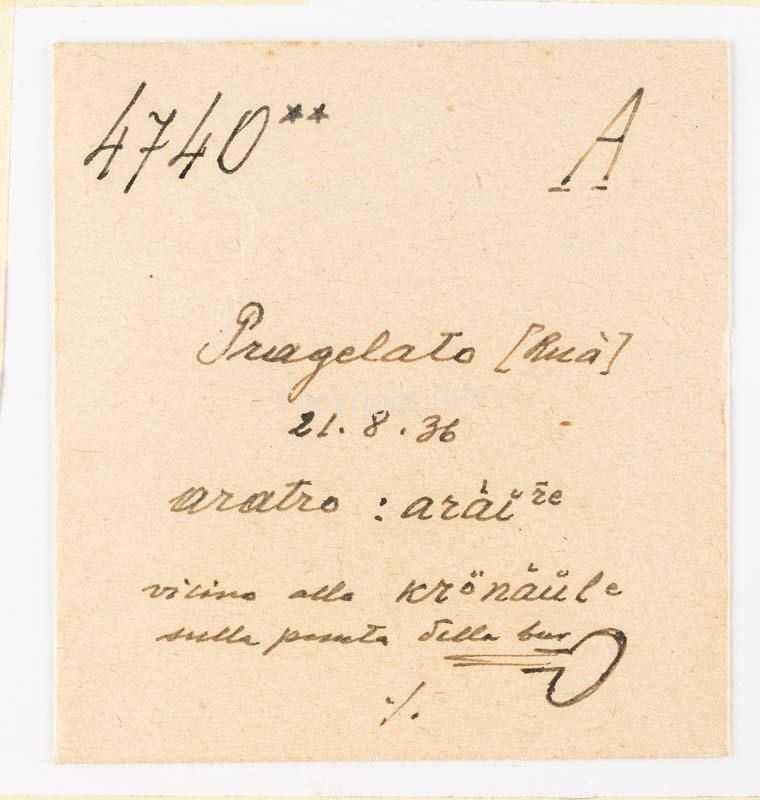 4740** A
Pragelato [Ruà]
21.8.36
aratro : aràiře
vicino alla krönäüle
sulla punta della bur
./.